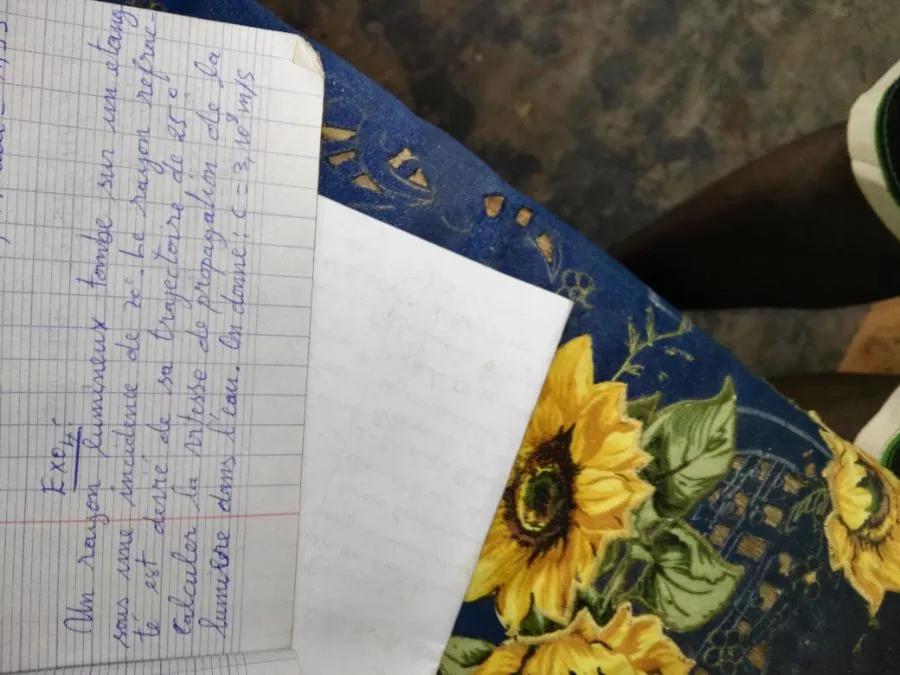 Exo4:
Un rayon lumineux tombe sur un etang
sous une incidence de 70°. Le rayon refrac-
té est devié de sa trajectoire de 25°
Calculer la vitesse de propagation de la
lumière dans l'eau. On donne: c = 3,10⁸ m/s